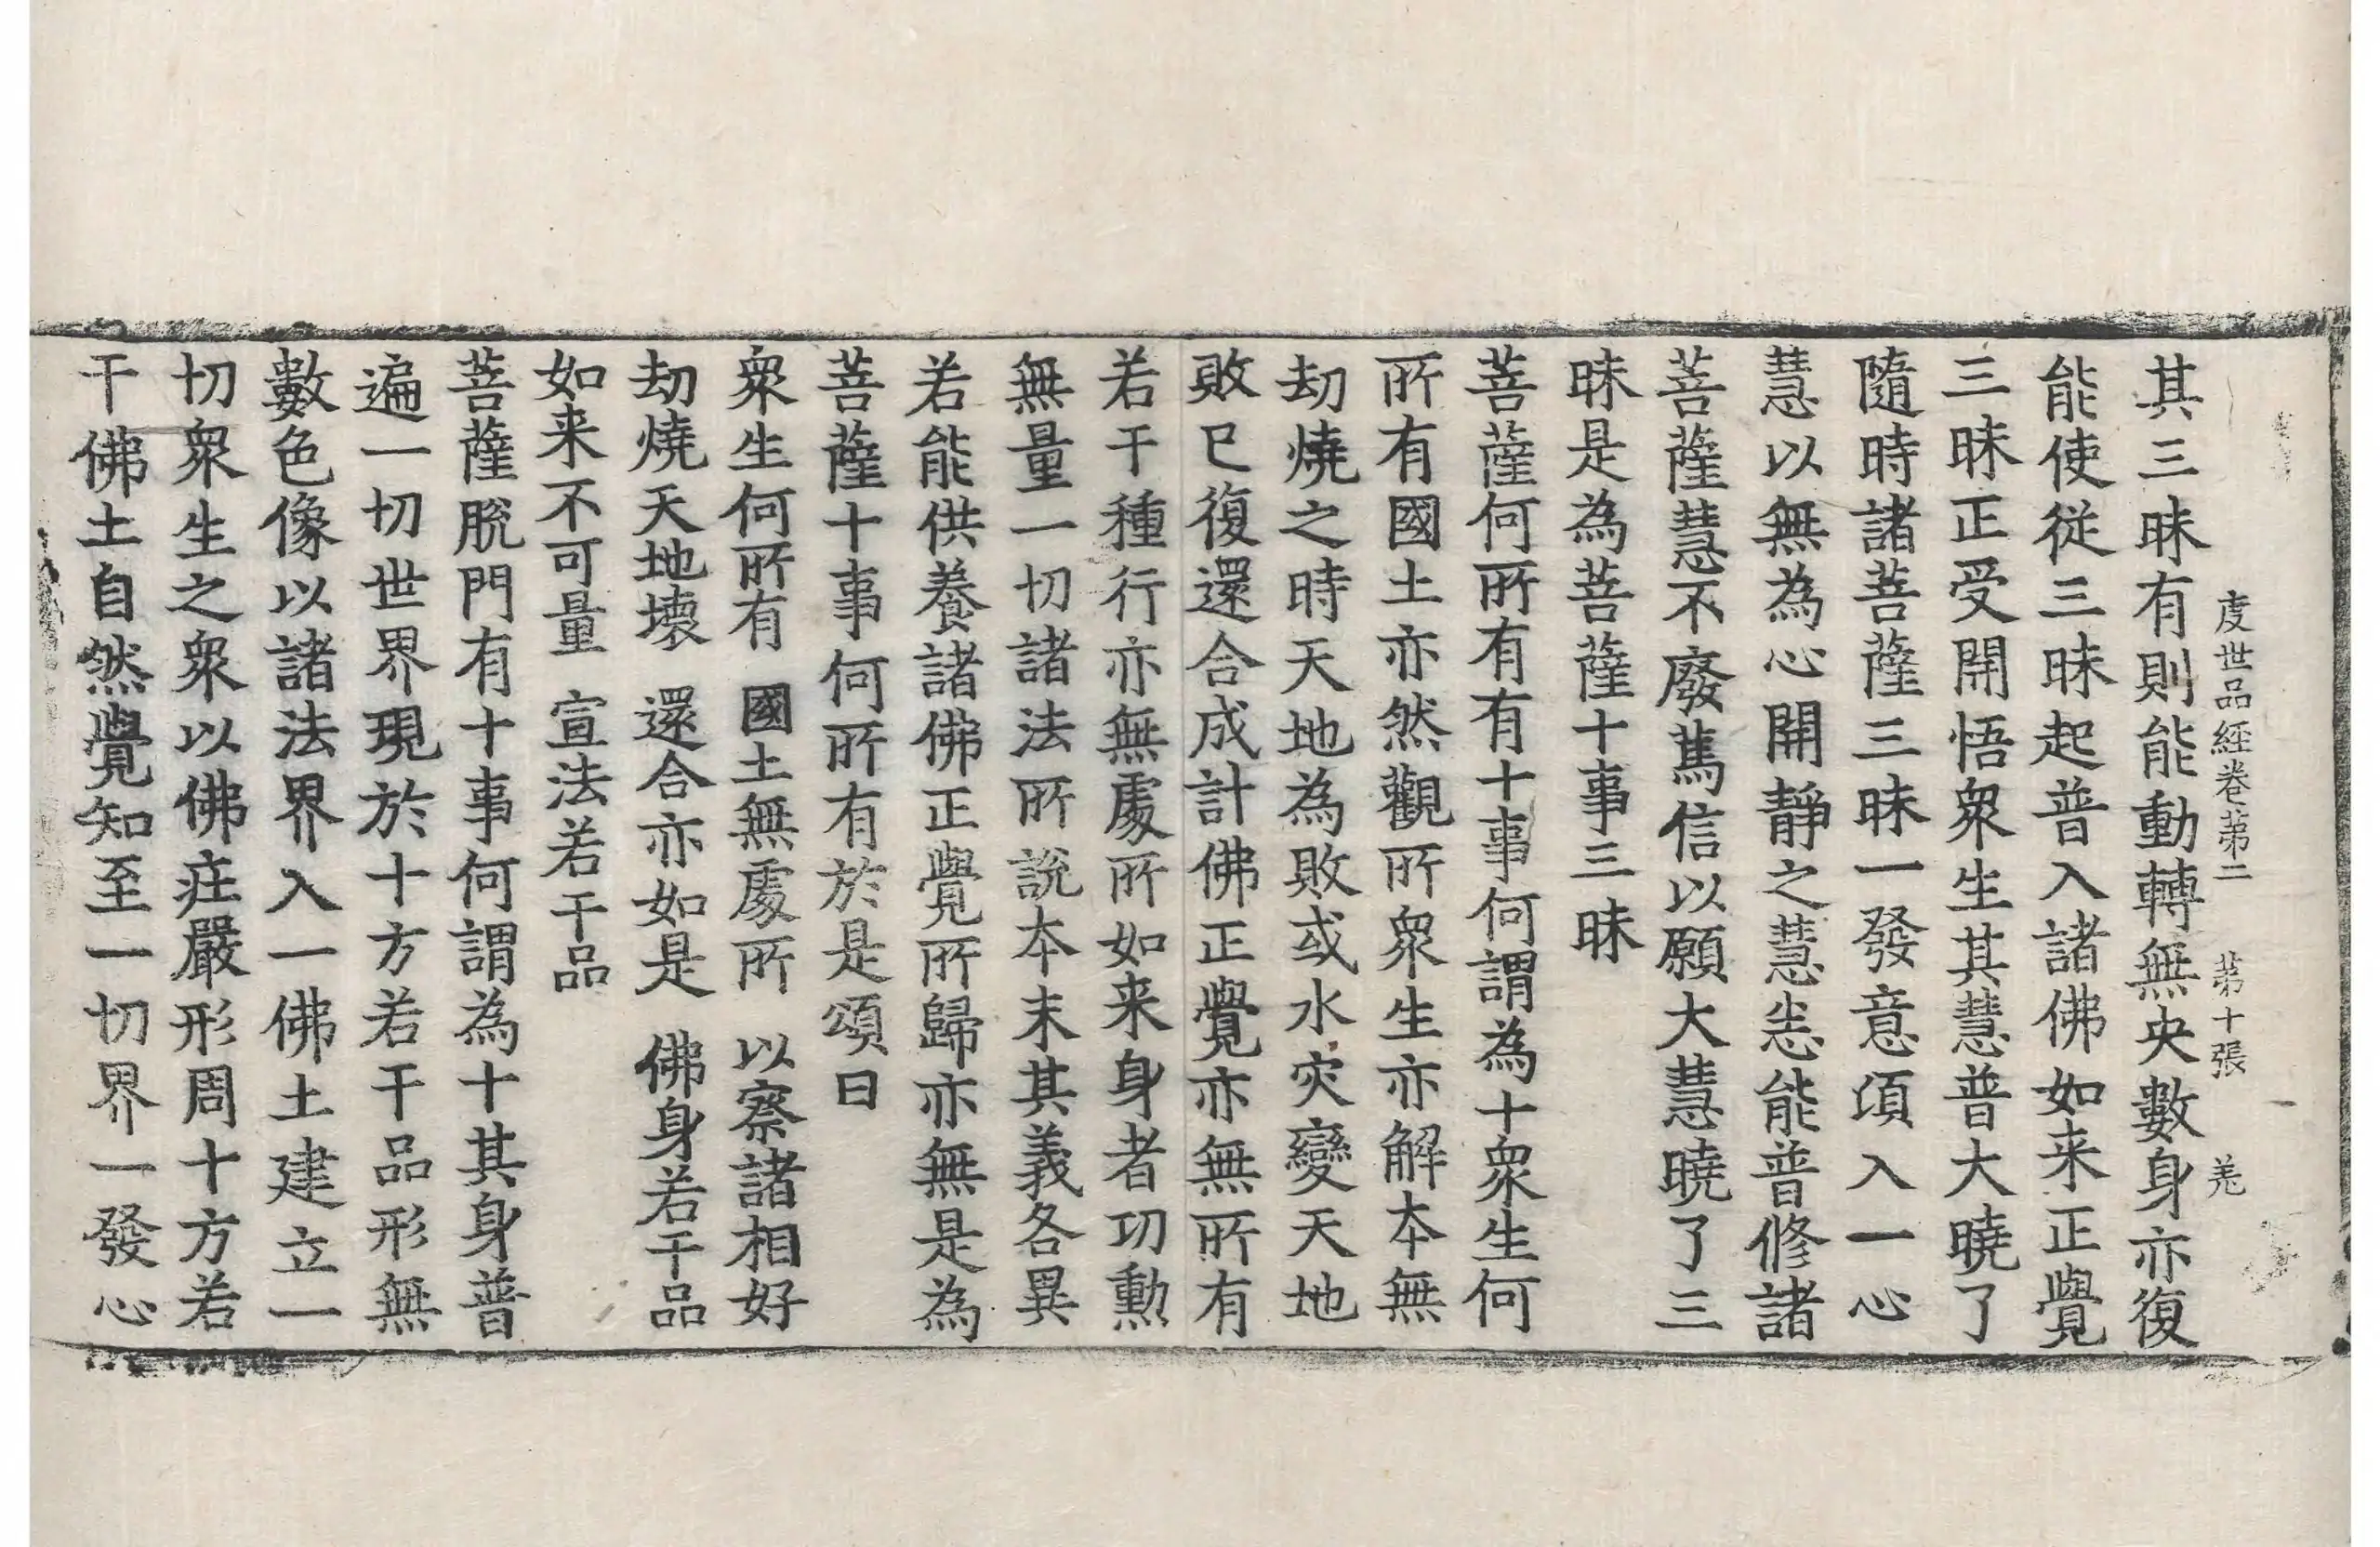 度世品経卷第二 第十張 羌
其三昧有則能動轉無央數身亦復
能使從三昧起普入諸佛如来正覺
三昧正受開悟衆生其慧普大曉了
隨時諸菩薩三昧一發意頃入一心
慧以無為心開靜之慧悉能普修諸
菩薩慧不廢篤信以願大慧曉了三
昧是為菩薩十事三昧
菩薩何所有有十事何謂為十衆生何
所有國土亦然觀所衆生亦解本無
劫燒之時天地為敗或水灾變天地
敗已復還合成計佛正覺亦無所有
若干種行亦無處所如来身者功勳
無量一切諸法所說本末其義各異
若能供養諸佛正覺所歸亦無是為
菩薩十事何所有於是頌曰
衆生何所有 國土無處所 以察諸相好
劫燒天地壞 還合亦如是 佛身若干品
如来不可量 宣法若干品
菩薩脫門有十事何謂為十其身普
遍一切世界現於十方若干品形無
數色像以諸法界入一佛土建立一
切衆生之衆以佛莊嚴形周十方若
干佛土自然覺知至一切界一發心